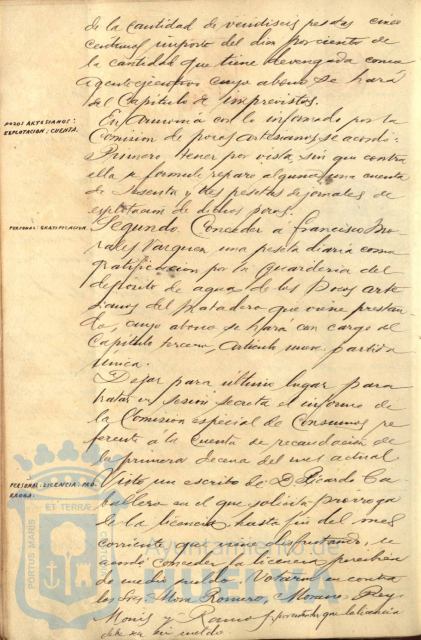 de la cantidad de veintiseis pesetas cinco
centimos importe del dies por ciento de
la cantidad que tiene devengada como
agente ejecutivo cuyo abono se hará
del Capitulo de imprevistos.
POZOS ARTESIANOS:
EXPLOTACION: CUENTA.
En armonia con lo informado por la
Comision de pozos artesianos se acordó:
Primero, tener por vista sin que contra
ella se formule reparo alguno una cuenta
de sesenta y tres pesetas de jornales de
explotacion de dichos pozos.
PERSONAL: GRATIFICACION
Segundo. Conceder a Francisco Mo-
rales Vazquez una peseta diaria como
gratificacion por la guarderia del
deposito de agua de los Pozos arte-
sianos del Matadero que viene prestan-
do, cuyo abono se hará con cargo al
Capitulo tercero, articulo nueve partida
única.
Dejar para ultimo lugar para
tratar en Sesion secreta el informe de
la Comision especial de Consumos re-
ferente á la Cuenta de recaudacion de
la primera decena del mes actual.
PERSONAL: LICENCIA: PRO-
RROGA:
Visto un escrito de D. Ricardo Ca-
ballero en el que solicita prorroga
de la licencia hasta fin del mes
corriente que viene disfrutando, se
acordó conceder la licencia
de medio sueldo. Votaron en contra
los Sres. Mora Romero, Moreno, Rey
y Romo que la licencia
sin sueldo
PORTUS MARIS
ET TERRAE
Ayuntamiento de